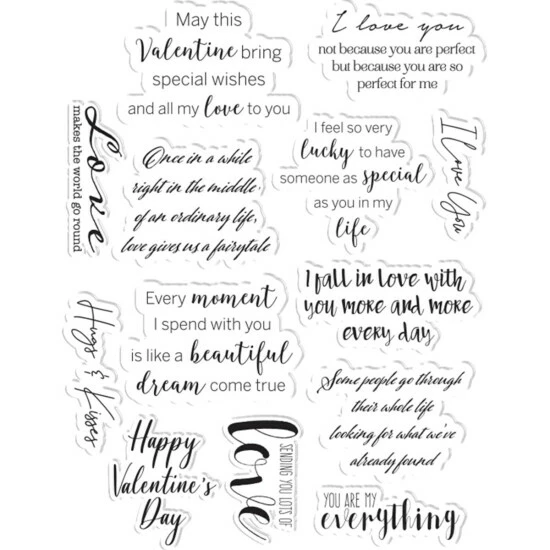 May this
Valentine bring
special wishes
and all my love to you
I love you
not because you are perfect
but because you are so
perfect for me
Love
makes the world go round
Once in a while
right in the middle
of an ordinary life,
love gives us a fairytale
I feel so very
lucky to have
someone as special
as you in my
life
I Love You
I fall in love with
you more and more
every day
Hugs & Kisses
Every moment
I spend with you
is like a beautiful
dream come true
Some people go through
their whole life
looking for what we've
already found
Happy
Valentine's
Day
SENDING YOU LOTS OF
love
YOU ARE MY
everything